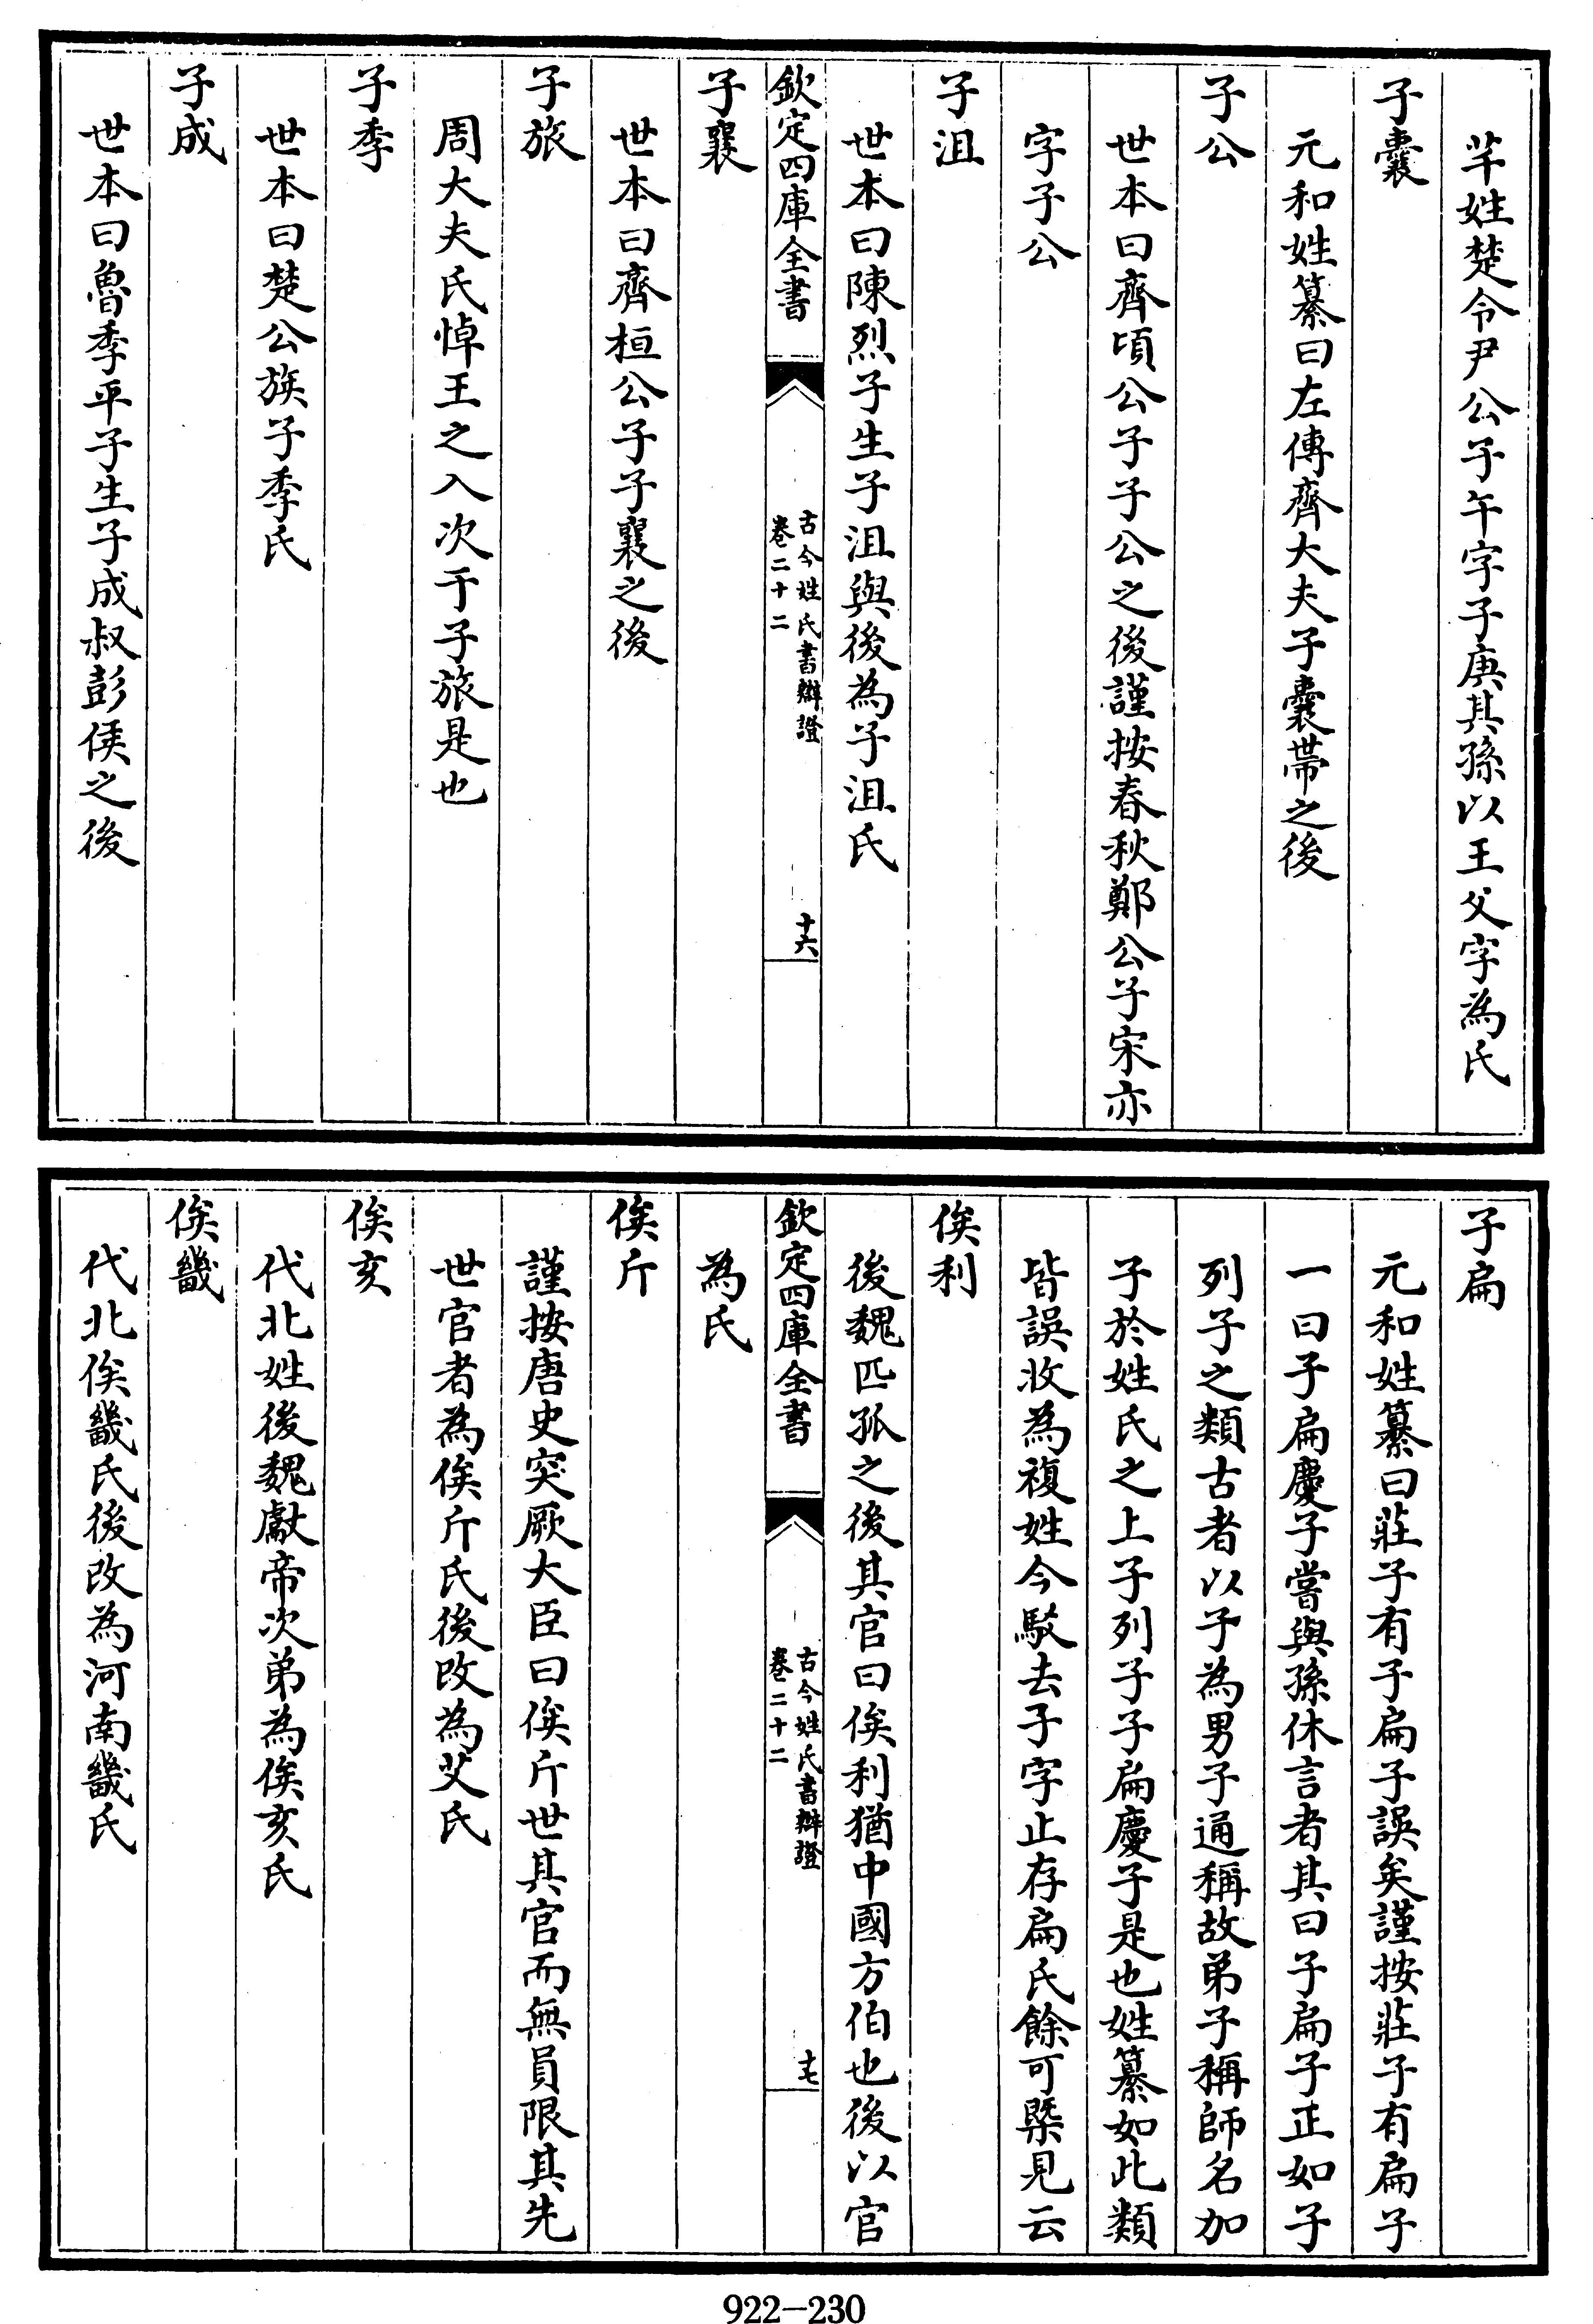 芊姓楚令尹公子午字子庚其孫以王父字為氏
子囊
元和姓纂曰左傳齊大夫子囊帶之後
子公
世本曰齊頃公子子公之後謹按春秋鄭公子宋亦
字子公
子沮
世本曰陳烈子生子沮與後為子沮氏
欽定四庫全書
古今姓氏書辯證
卷二十二
十六
子襄
世本曰齊桓公子子襄之後
子旅
周大夫氏悼王之入次于子旅是也
子季
世本曰楚公族子季氏
子成
世本曰魯季平子生子成叔彭侯之後
子扁
元和姓纂曰莊子有子扁子誤矣謹按莊子有扁子
一曰子扁慶子嘗與孫休言者其曰子扁子正如子
列子之類古者以子為男子通稱故弟子稱師名加
子於姓氏之上子列子子扁慶子是也姓纂如此類
皆誤收為複姓今駁去子字止存扁氏餘可槩見云
俟利
後魏匹孤之後其官曰俟利猶中國方伯也後以官
欽定四庫全書
古今姓氏書辯證
卷二十二
十七
為氏
俟斤
謹按唐史突厥大臣曰俟斤世其官而無員限其先
世官者為俟斤氏後改為艾氏
俟亥
代北姓後魏獻帝次弟為俟亥氏
俟畿
代北俟畿氏後改為河南畿氏
922-230